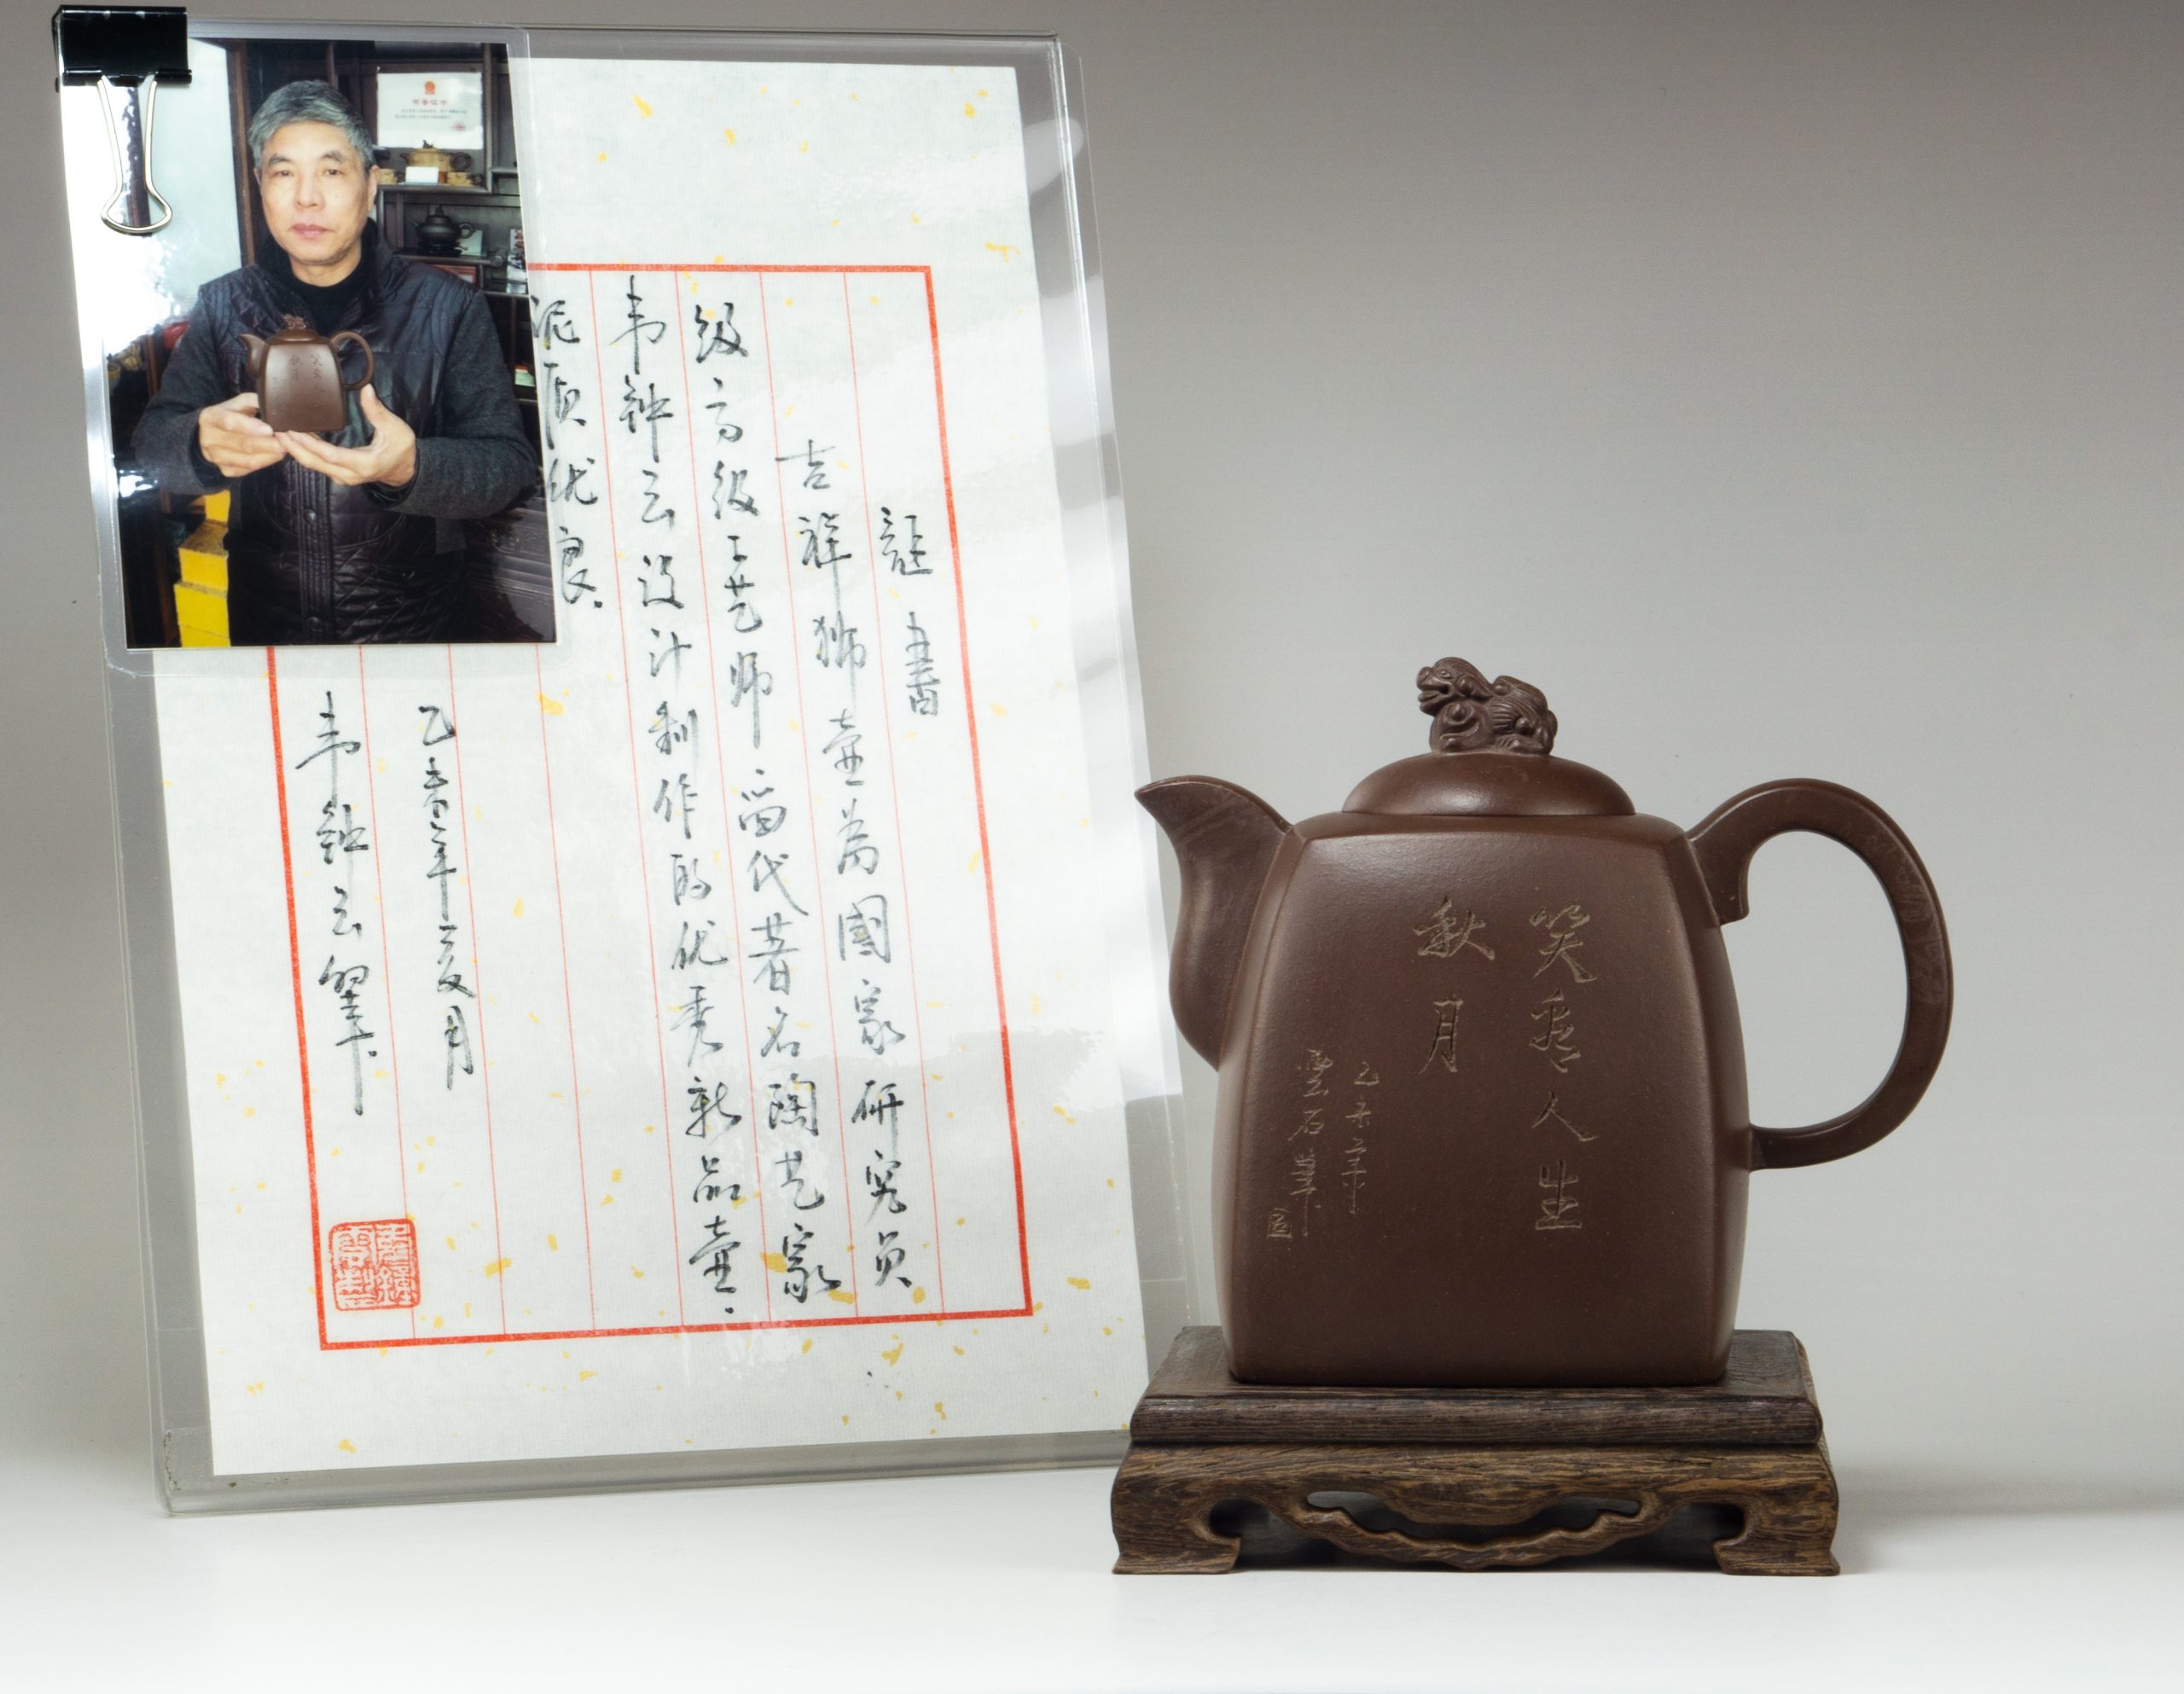 証書
吉祥狮壶为國家研究员
级高级工艺师当代著名陶艺家
韦钟云设计制作的优秀新品壶.
泥质优良.
乙未年 月
韦钟云
笑 人生
秋月
乙未年
雲石